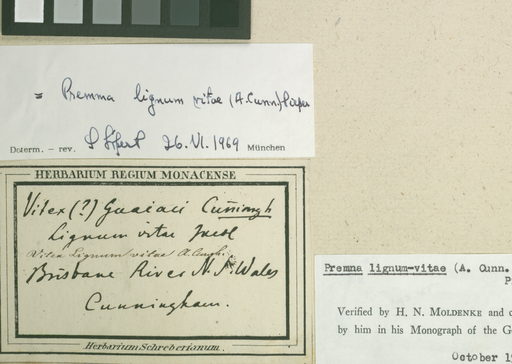 = Premma lignum vitae (A. Cunn) Pieper
Determ. – rev. 26.VI.1969 München
HERBARIUM REGIUM MONACENSE
Vitex (?) Guaiaci Cuñingh
Lignum vitae
Vitex Lignum vitae A. Cungh.
Brisbane River N. S. Wales
Cunningham.
Herbarium Schreberianum.
Premna lignum-vitae (A. Cunn.
P
Verified by H. N. MOLDENKE and c
by him in his Monograph of the G
October 19